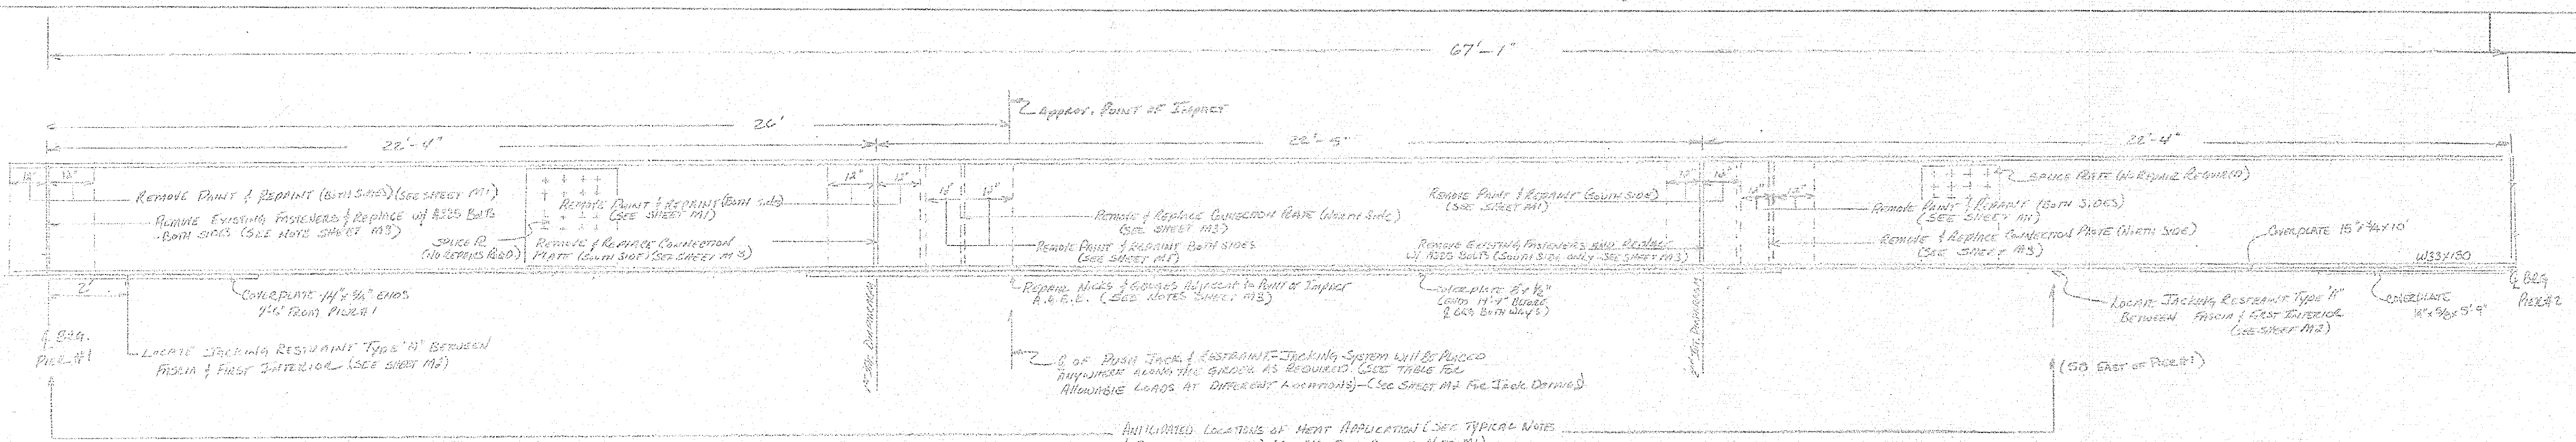 67'-1"
APPROX. POINT OF IMPACT
26'
22'-4"
22'-5"
22'-4"
12"
12"
12"
12"
12"
12"
12"
12"
12"
12"
REMOVE PAINT & REPAINT (BOTH SIDES) (SEE SHEET M1)
REMOVE EXISTING FASTENERS & REPLACE W/ A325 BOLTS
BOTH SIDES (SEE NOTE SHEET M3)
REMOVE PAINT & REPAINT (BOTH SIDE)
(SEE SHEET M1)
SPLICE PL
(NO REPAIRS REQD)
REMOVE & REPLACE CONNECTION
PLATE (SOUTH SIDE) (SEE SHEET M3)
REMOVE & REPLACE CONNECTION PLATE (NORTH SIDE)
(SEE SHEET M3)
REMOVE PAINT & REPAINT BOTH SIDES
(SEE SHEET M1)
REMOVE PAINT & REPAINT (SOUTH SIDE)
(SEE SHEET M1)
REMOVE EXISTING FASTENERS AND REPLACE
W/ A325 BOLTS (SOUTH SIDE ONLY - SEE SHEET M3)
SPLICE PLATE (NO REPAIR REQUIRED)
REMOVE PAINT & REPAINT (BOTH SIDES)
(SEE SHEET M1)
REMOVE & REPLACE CONNECTION PLATE (NORTH SIDE)
(SEE SHEET M3)
COVERPLATE 15" x 3/4 x 10'
W33x130
2'
COVERPLATE 14" x 3/4" ENDS
FROM PIER #1
REPAIR NICKS & GOUGES ADJACENT TO POINT OF IMPACT
(SEE NOTES SHEET M3)
COVERPLATE
BEFORE
BRG BOTH WAYS)
LOCATE JACKING RESTRAINT TYPE 'A'
BETWEEN FASCIA & FIRST INTERIOR
(SEE SHEET M2)
COVERPLATE
5'-9"
℄ BRG
PIER #2
℄ BRG.
PIER #1
LOCATE JACKING RESTRAINT TYPE 'A' BETWEEN
FASCIA & FIRST INTERIOR (SEE SHEET M2)
INT. DIAPHRAGM
INT. DIAPHRAGM
℄ OF PUSH JACK & RESTRAINT-JACKING SYSTEM WILL BE PLACED
ANYWHERE ALONG THE GIRDER AS REQUIRED. (SEE TABLE FOR
ALLOWABLE LOADS AT DIFFERENT LOCATIONS) - (SEE SHEET M2 FOR JACK DETAILS)
(50 EAST OF PIER #1)
ANTICIPATED LOCATIONS OF HEAT APPLICATION (SEE TYPICAL NOTES